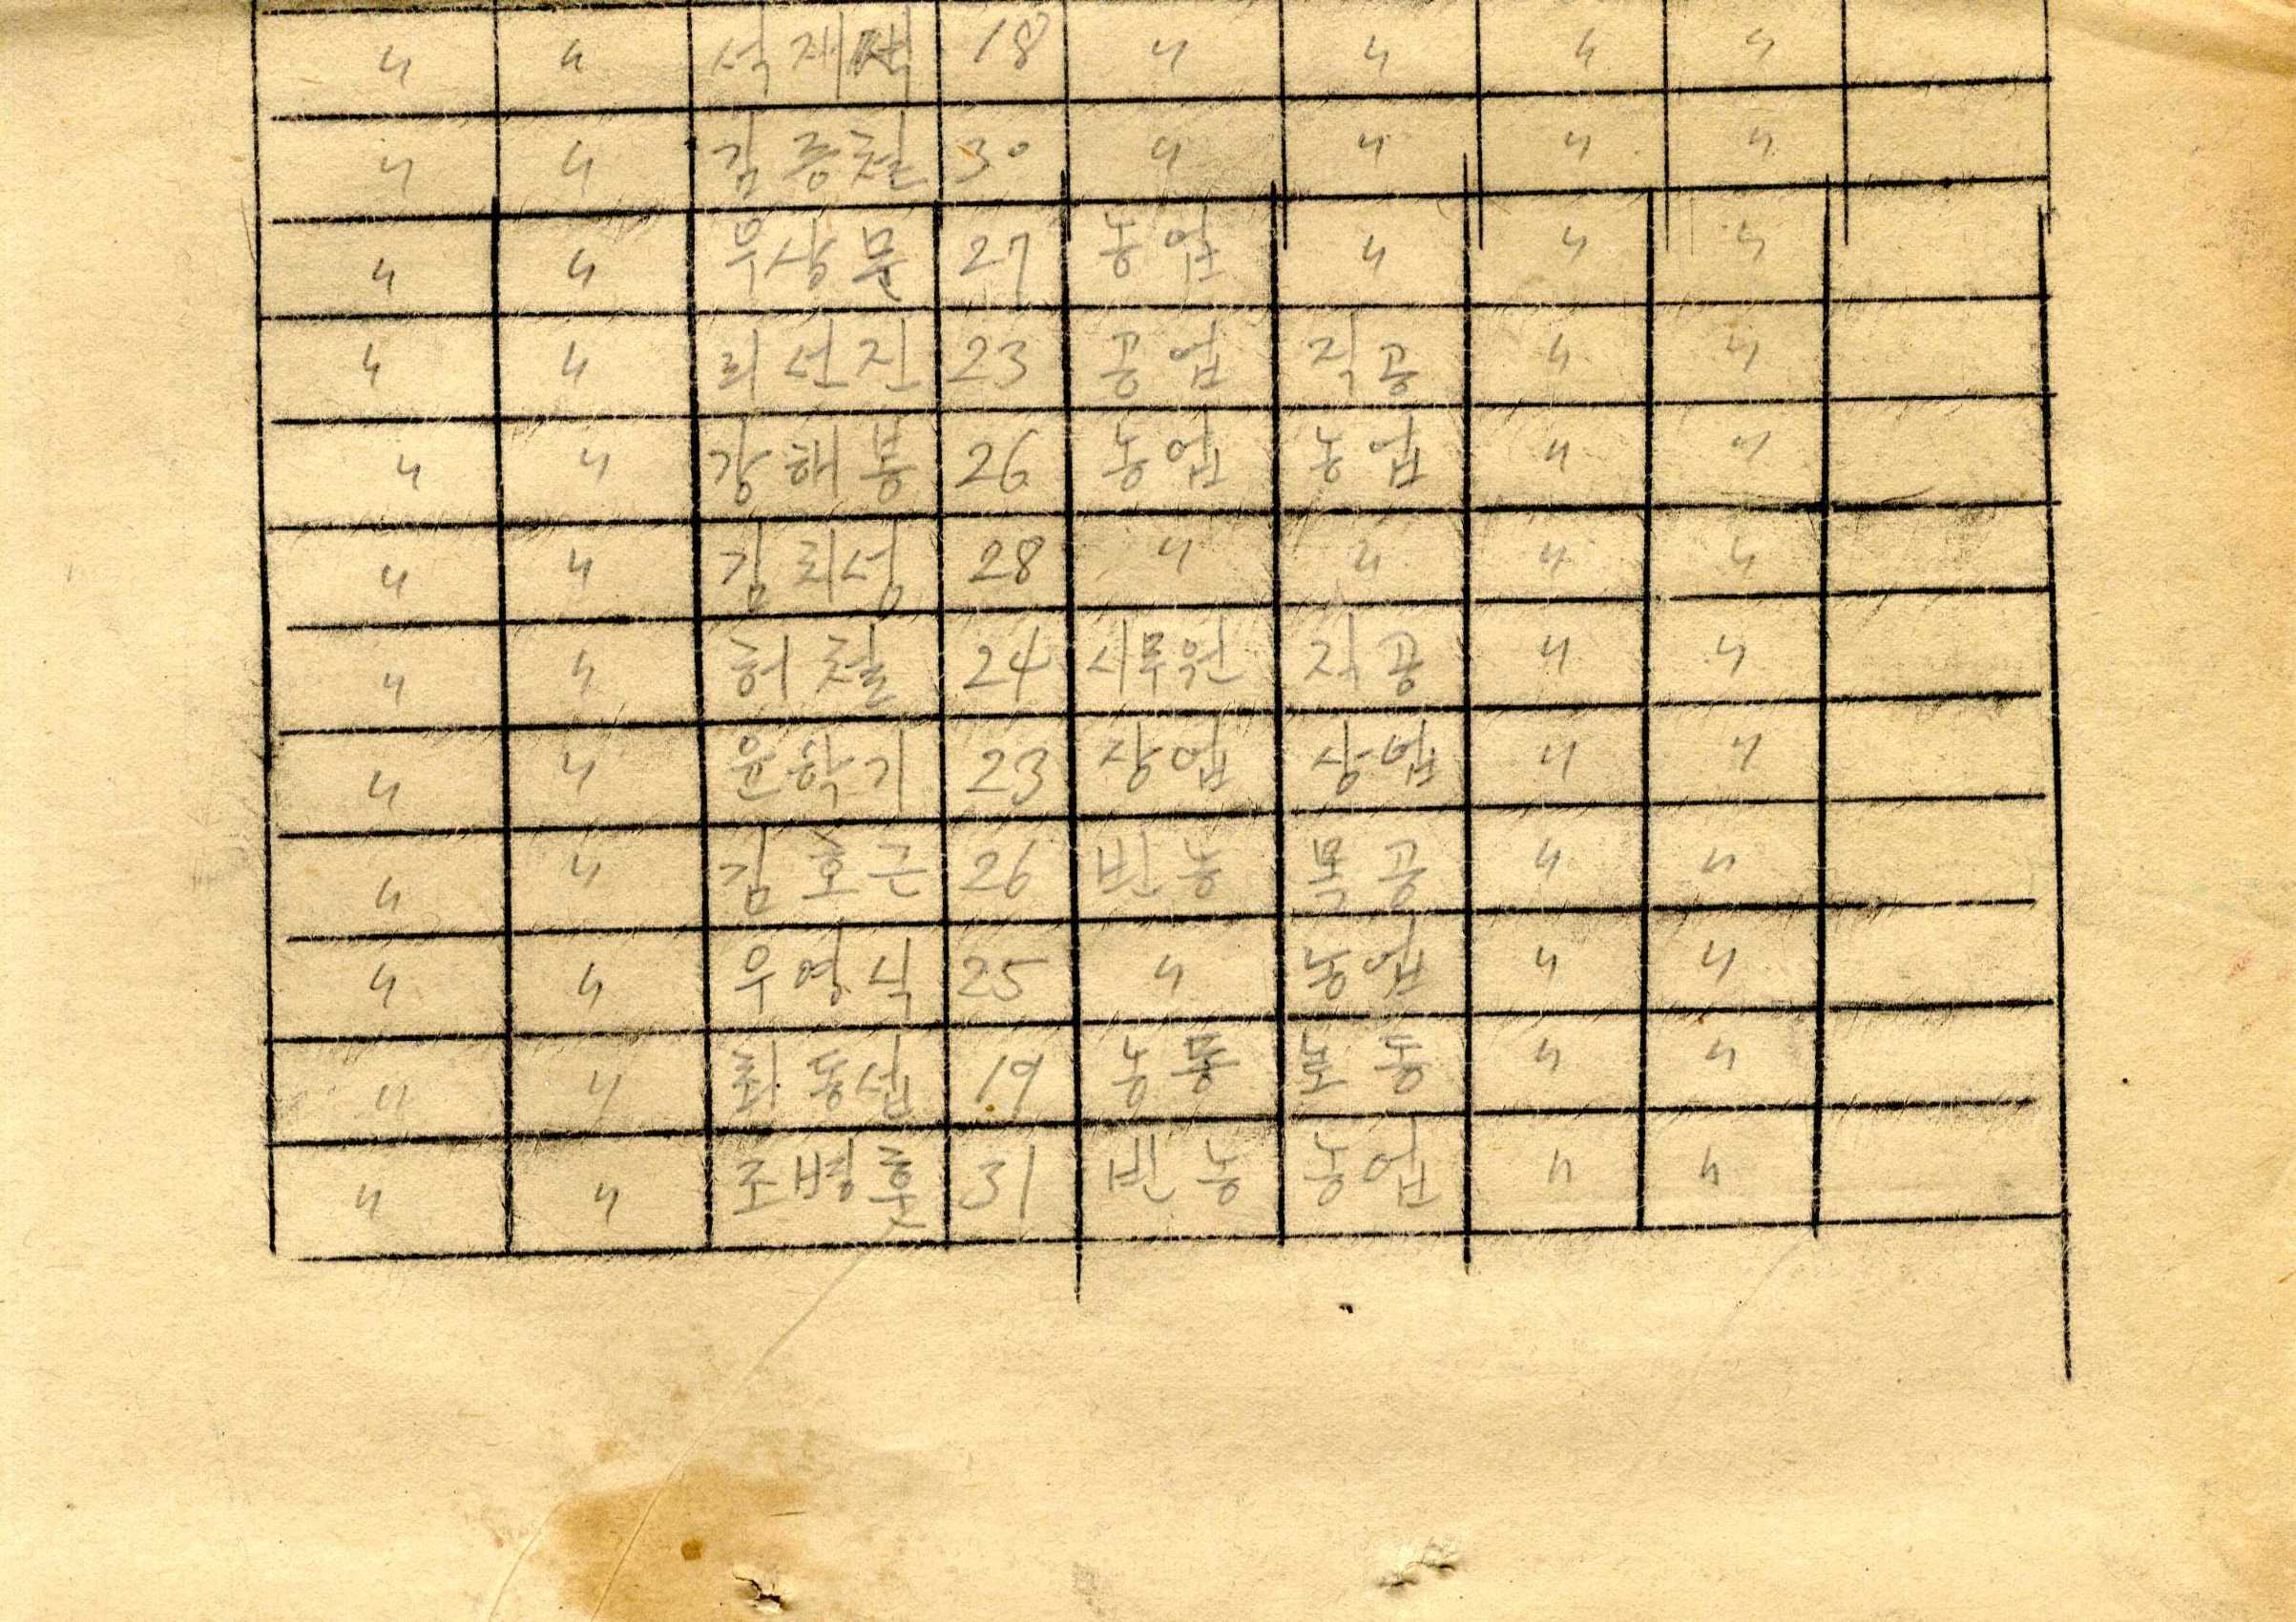 〃 〃 석재 18 〃 〃 〃 〃
〃 〃 김종철 30 〃 〃 〃 〃
〃 〃 부상문 27 농업 〃 〃 〃
〃 〃 리선진 23 공업 직공 〃 〃
〃 〃 강해봉 26 농업 농업 〃 〃
〃 〃 김리성 28 〃 〃 〃 〃
〃 〃 허철 24 사무원 직공 〃 〃
〃 〃 윤학기 23 상업 상업 〃 〃
〃 〃 김호근 26 빈농 목공 〃 〃
〃 〃 우영식 25 〃 농업 〃 〃
〃 〃 최동섭 19 〃 〃
〃 〃 조병훈 31 빈농 농업 〃 〃